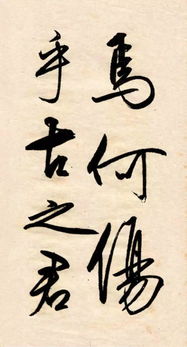 馬何傷
乎古之君